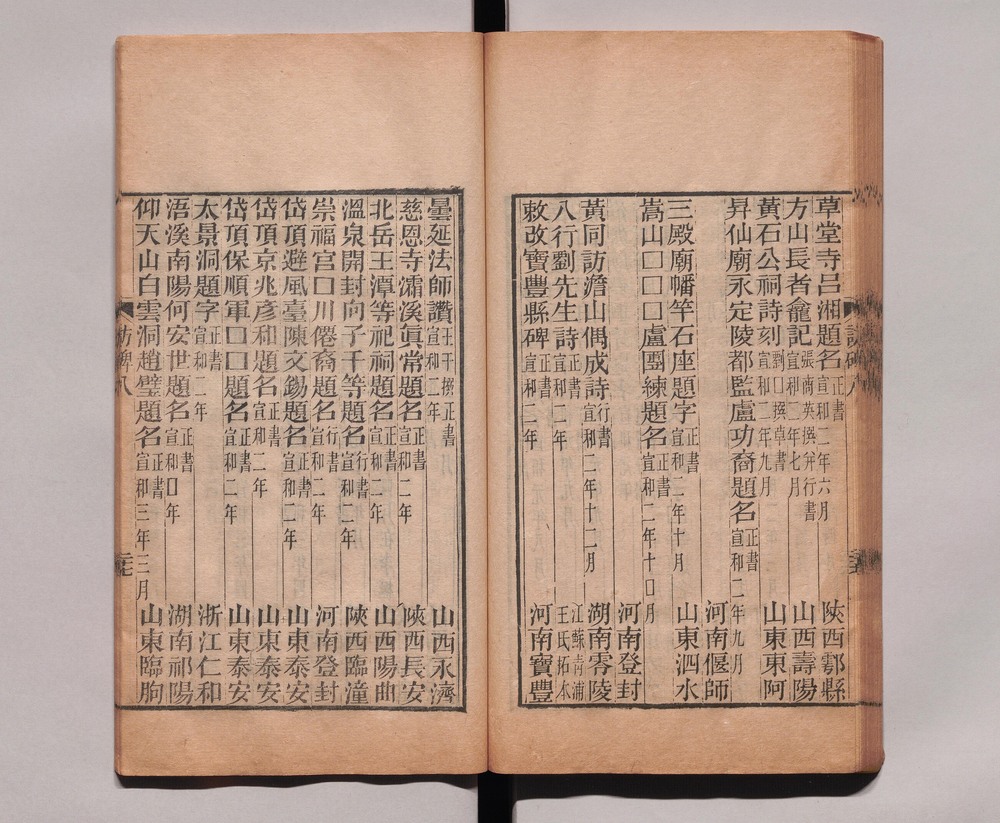 草堂寺呂湘題名正書宣和二年六月 陝西鄠縣
方山長者龕記張商英撰并行書宣和二年七月 山西壽陽
黃石公祠詩刻劉囗撰草書宣和二年九月 山東東阿
昇仙廟永定陵都監盧功裔題名正書宣和二年九月 河南偃師
三殿廟幡竿石座題字正書宣和二年十月 山東泗水
嵩山囗囗囗盧團練題名正書宣和二年十囗月 河南登封
黃同訪澹山偶成詩行書宣和二年十二月 湖南零陵
八行劉先生詩正書宣和二年 江蘇青浦王氏拓本
敕改寶豐縣碑正書宣和二年 河南寶豐
曇延法師讚王干撰正書宣和二年 山西永濟
慈恩寺灞溪眞常題名正書宣和二年 陝西長安
北岳王潭等祀祠題名正書宣和二年 山西陽曲
溫泉開封向子千等題名行書宣和二年 陝西臨潼
崇福宮囗川僊裔題名行書宣和二年 河南登封
岱頂避風臺陳文錫題名正書宣和二年 山東泰安
岱頂京兆彥和題名正書宣和二年 山東泰安
岱頂保順軍囗囗題名正書宣和二年 山東泰安
太景洞題字正書宣和二年 浙江仁和
浯溪南陽何安世題名正書宣和囗年 湖南祁陽
仰天山白雲洞趙璧題名正書宣和三年三月 山東臨朐
訪碑八